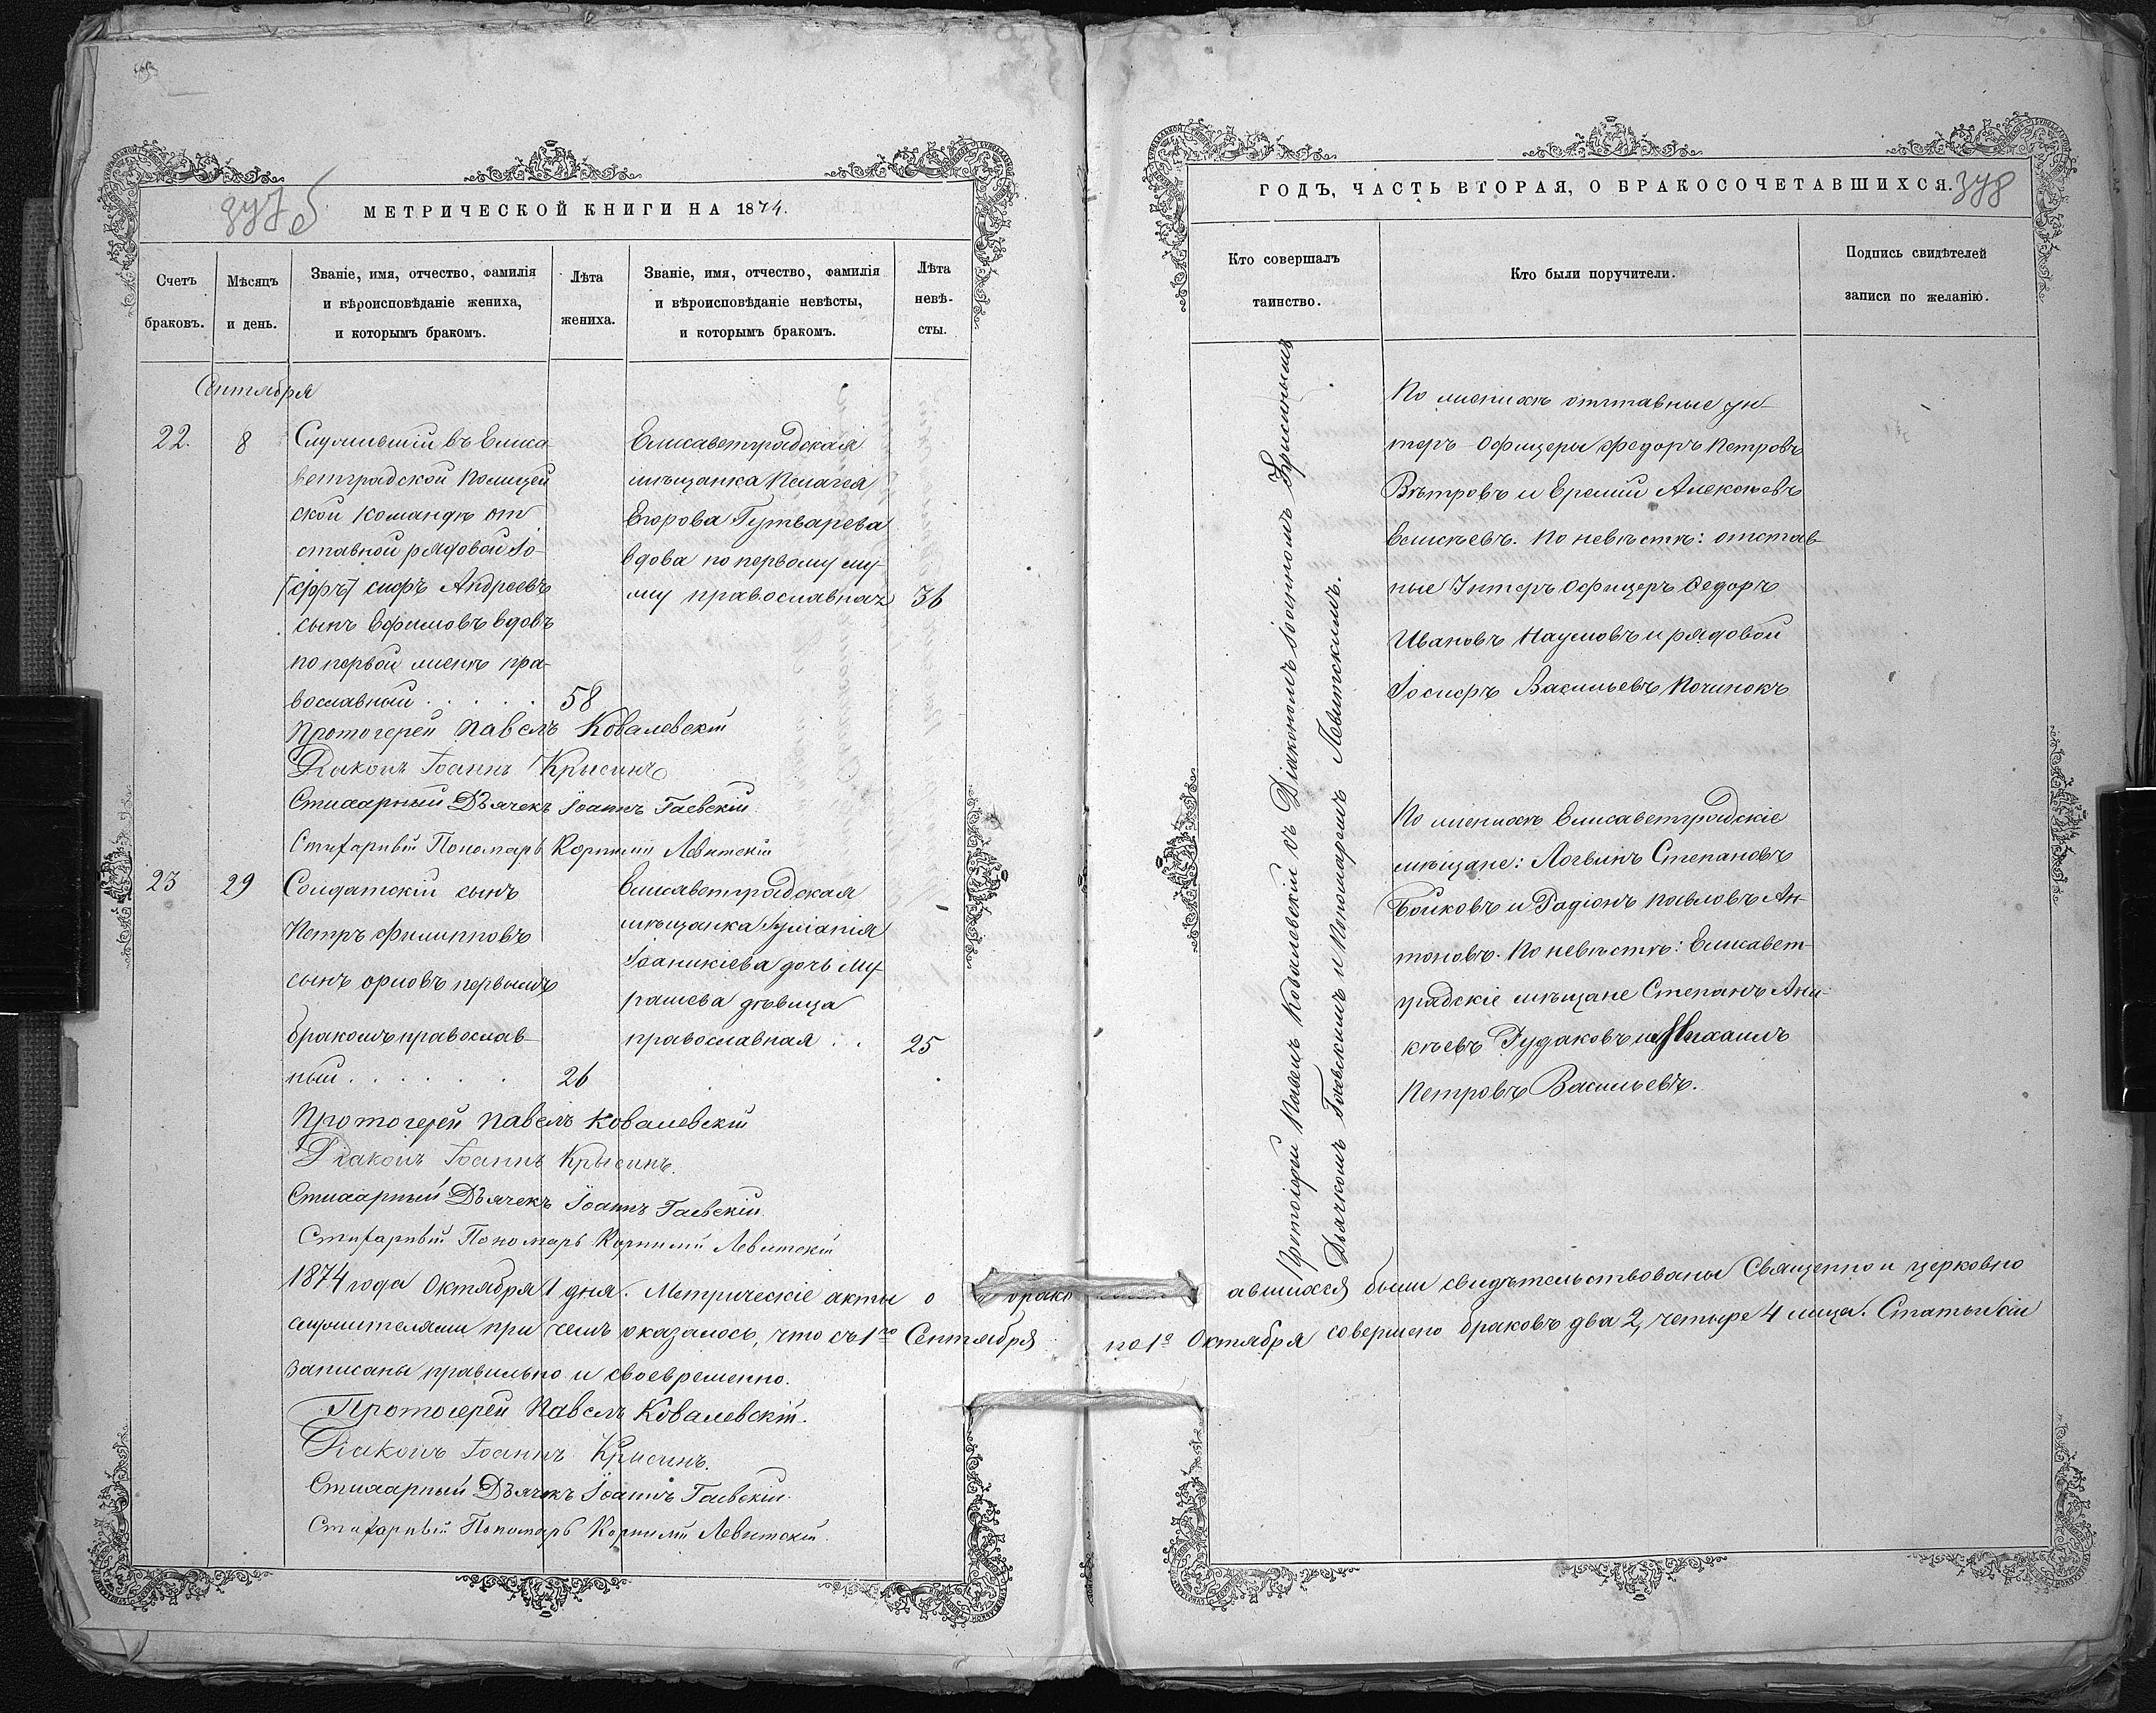 377 б
МЕТРИЧЕСКОЙ КНИГИ НА 1874.
Счетъ
браковъ.
Мѣсяцъ
и день.
Званіе, имя, отчество, фамилія
и вѣроисповѣданіе жениха,
и которымъ бракомъ.
Лѣта
жениха.
Званіе, имя, отчество, фамилія
и вѣроисповѣданіе невѣсты,
и которымъ бракомъ.
Лѣта
невѣ-
сты.
Сентября
22.
8
Служившій въ Елиса
ветградской Полицей
ской командѣ от
ставной рядовой Іо-
сифъ Андреевъ
сынъ Ефимовъ вдовъ
по первой женѣ пра-
вославный . . . . .
58
Елисаветградская
мѣщанка Пелагея
Егорова Гутварева
вдова по первому му-
жу православная
36
Протоіерей Павелъ Ковалевскій
Діаконъ Іоаннъ Крысинъ
Стихарный Дьячекъ Іоаннъ Гаевскій
Стихарный Пономарь Корнилій Левитскій
23
29
Солдатскій сынъ
Петръ Филипповъ
сынъ Орловъ первымъ
бракомъ православ-
ный . . . . . .
26
Елисаветградская
мѣщанка Іуліанія
Іоаникіева дочь Му-
рашева дѣвица
православная . .
25
Протоіерей Павелъ Ковалевскій
Діаконъ Іоаннъ Крысинъ.
Стихарный Дьячекъ Іоаннъ Гаевскій.
Стихарный Пономарь Корнилій Левитскій
1874 года Октября 1 дня. Метрическіе акты о брако
служителями при чемъ оказалось, что съ 1го Сентября
записаны правильно и своевременно.
Протоіерей Павелъ Ковалевскій.
Діаконъ Іоаннъ Крысинъ.
Стихарный Дьячекъ Іоаннъ Гаевскій.
Стихарный Пономарь Корнилій Левитскій.
ГОДЪ, ЧАСТЬ ВТОРАЯ, О БРАКОСОЧЕТАВШИХСЯ.
378
Кто совершалъ
таинство.
Кто были поручители.
Подпись свидѣтелей
записи по желанію.
Протоіерей Павелъ Ковалевскій съ Діакономъ Іоанномъ Крысинымъ
Дьячкомъ Гаевскимъ и Пономаремъ Левитскимъ.
По женихѣ отставные ун-
теръ Офицеры Федоръ Петровъ
Вѣтровъ и Еремій Алексѣевъ
Елисѣевъ. По невѣстѣ: отстав-
ные Унтеръ Офицеръ Федоръ
Ивановъ Наумовъ и рядовой
Іосифъ Васильевъ Починокъ
По женихѣ Елисаветградскіе
мѣщане: Логвинъ Степановъ
Бойковъ и Радіонъ Павловъ Ан-
тоновъ. По невѣстѣ: Елисавет-
градскіе мѣщане Степанъ Ани-
кѣевъ Рудаковъ и Михаилъ
Петровъ Васильевъ.
авшихся были свидѣтельствованы Священно и церковно
по 1е Октября совершено браковъ два 2, четыре 4 лица. Статьи сіи